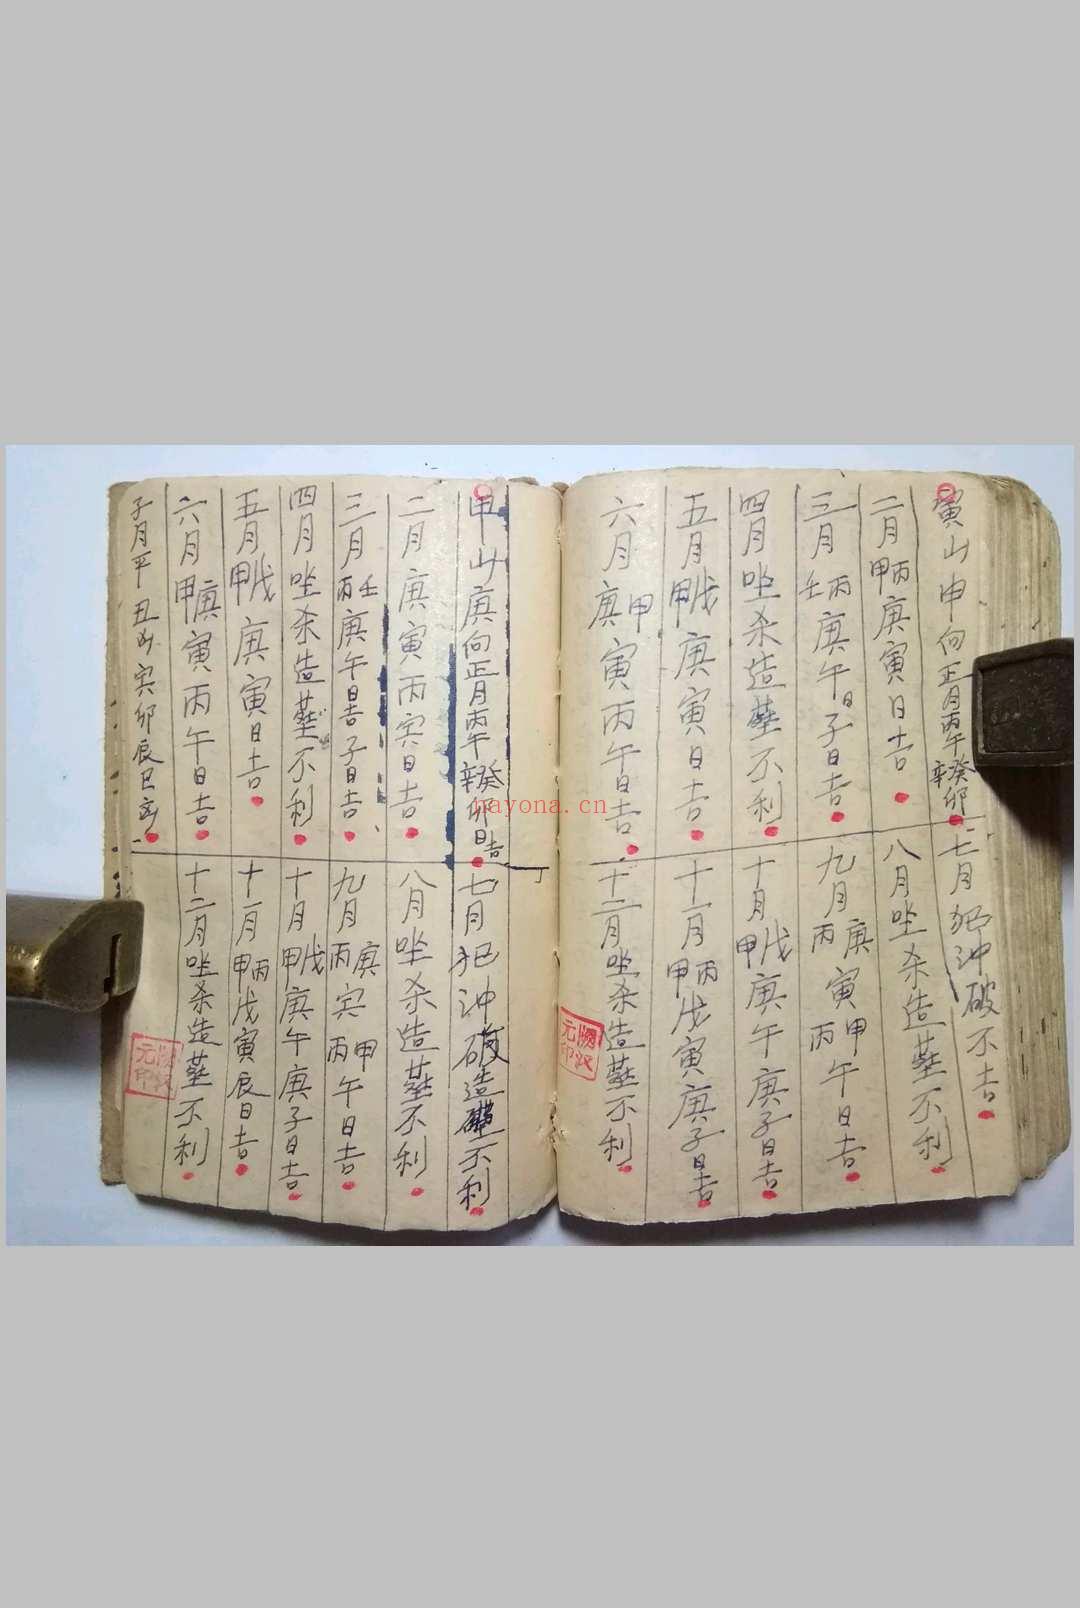 寅山申向正月丙午辛癸卯
二月甲丙庚寅日吉
三月壬丙庚午日子日吉
四月坐杀造葬不利
五月甲戊庚寅日吉
六月庚甲寅丙午日吉
七月犯冲破不吉
八月坐杀造葬不利
九月丙庚寅丙甲午日吉
十月甲戊庚午庚子日吉
十一月甲丙戊寅庚子日吉
十二月坐杀造葬不利
甲山庚向正月丙午辛癸卯日吉
二月庚寅丙寅日吉
三月丙壬庚午日吉子日吉
四月坐杀造葬不利
五月甲戊庚寅日吉
六月甲庚寅丙午日吉
子月平丑凶寅卯辰巳
七月犯冲破造葬不利
八月坐杀造葬不利
九月丙庚寅丙甲午日吉
十月甲戊庚午庚子日吉
十一月甲丙戊寅辰日吉
十二月坐杀造葬不利
nayona.cn